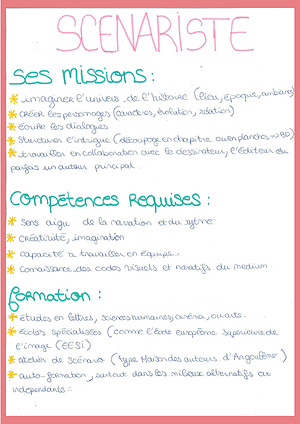 SCENARISTE
Ses Missions :
* imaginer l'univers de l'histoire (lieu, époque, ambiance)
* CRÉER les personnages (caractères, évolution, relation)
* écrire les dialogues
* Structurer l'intrigue (découpage en chapitre ou en planches
* travailler en collaboration avec le dessinateur, l'éditeur ou
parfois un auteur principal.
Compétences Requises :
* sens aigu de la narration et du rythme
* CRÉATIVITÉ, imagination
* capacité a travailler en équipe.
* connaissance des codes visuels et narratifs du medium
formation :
* études en lettres, sciences humaines, cinéma, ou arts.
* écoles spécialisées (comme l'école européenne supérieure de
l'image (EESI)
* atelier de scénario (type Maison des auteurs d'Angoulême)
* auto-formation, surtout dans les milieux alternatifs ou
indépendants.